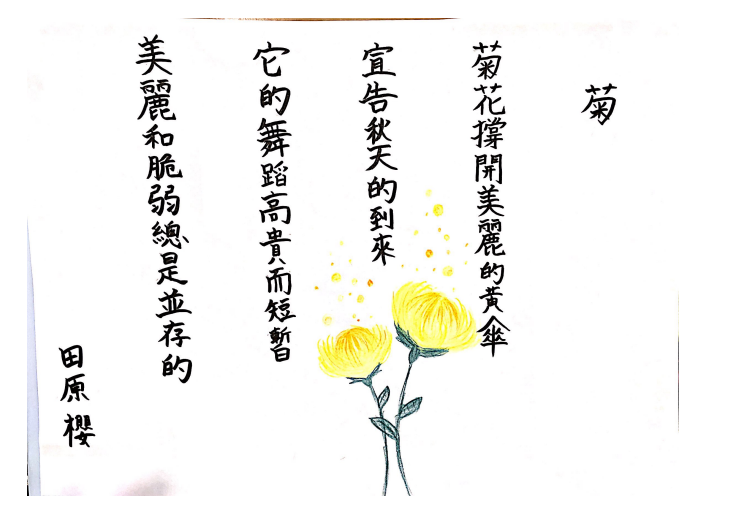 菊
菊花撐開美麗的黃傘
宣告秋天的到來
它的舞蹈高貴而短暫
美麗和脆弱總是並存的
田原櫻